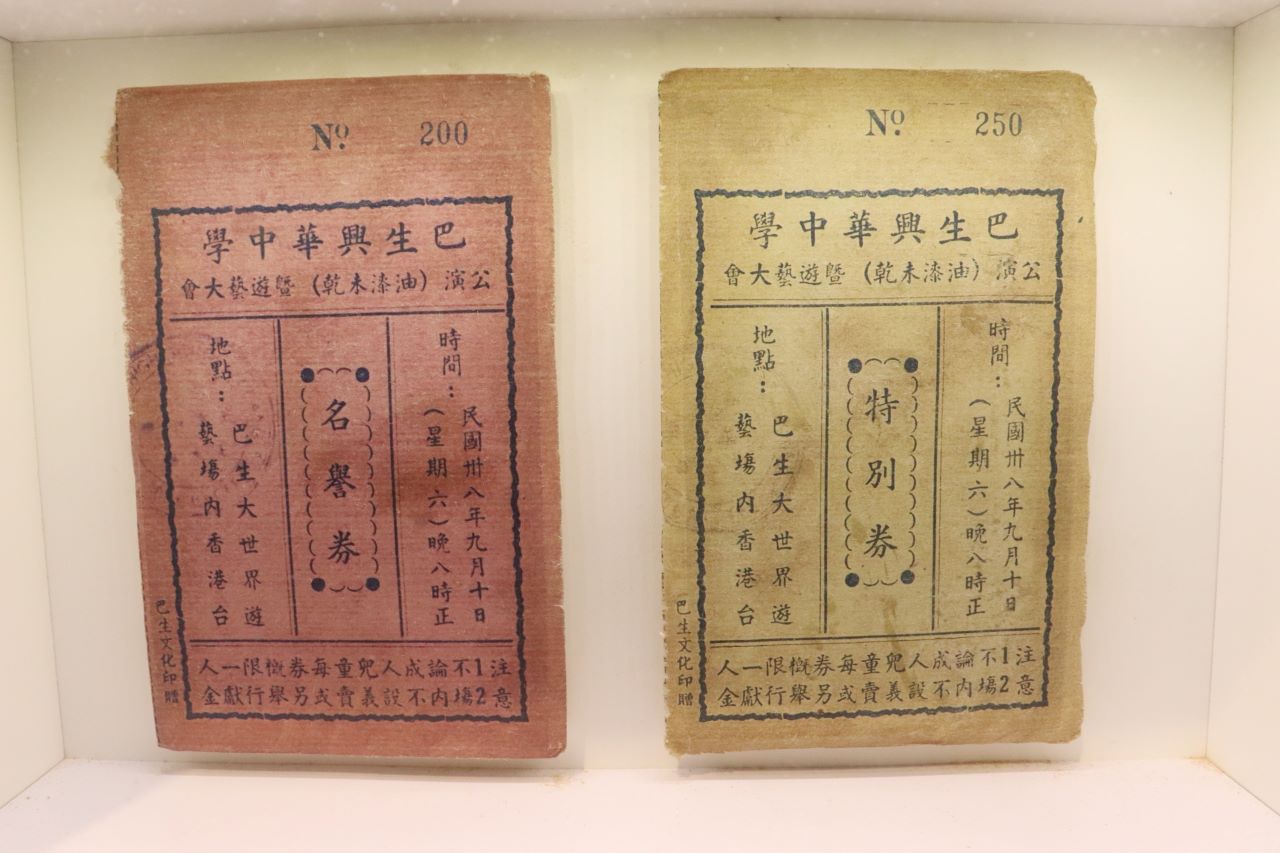 No 200
巴生興華中學
公演(油漆未乾)暨遊藝大會
時間:
民國卅八年九月十日
(星期六)晚八時正
名譽券
地點:
巴生大世界遊
藝場内香港台
注意
1不論成人兒童每券概限一人
2場内不設義賣或另舉行獻金
巴生文化印贈
No 250
巴生興華中學
公演(油漆未乾)暨遊藝大會
時間:
民國卅八年九月十日
(星期六)晚八時正
特別券
地點:
巴生大世界遊
藝場内香港台
注意
1不論成人兒童每券概限一人
2場内不設義賣或另舉行獻金
巴生文化印贈